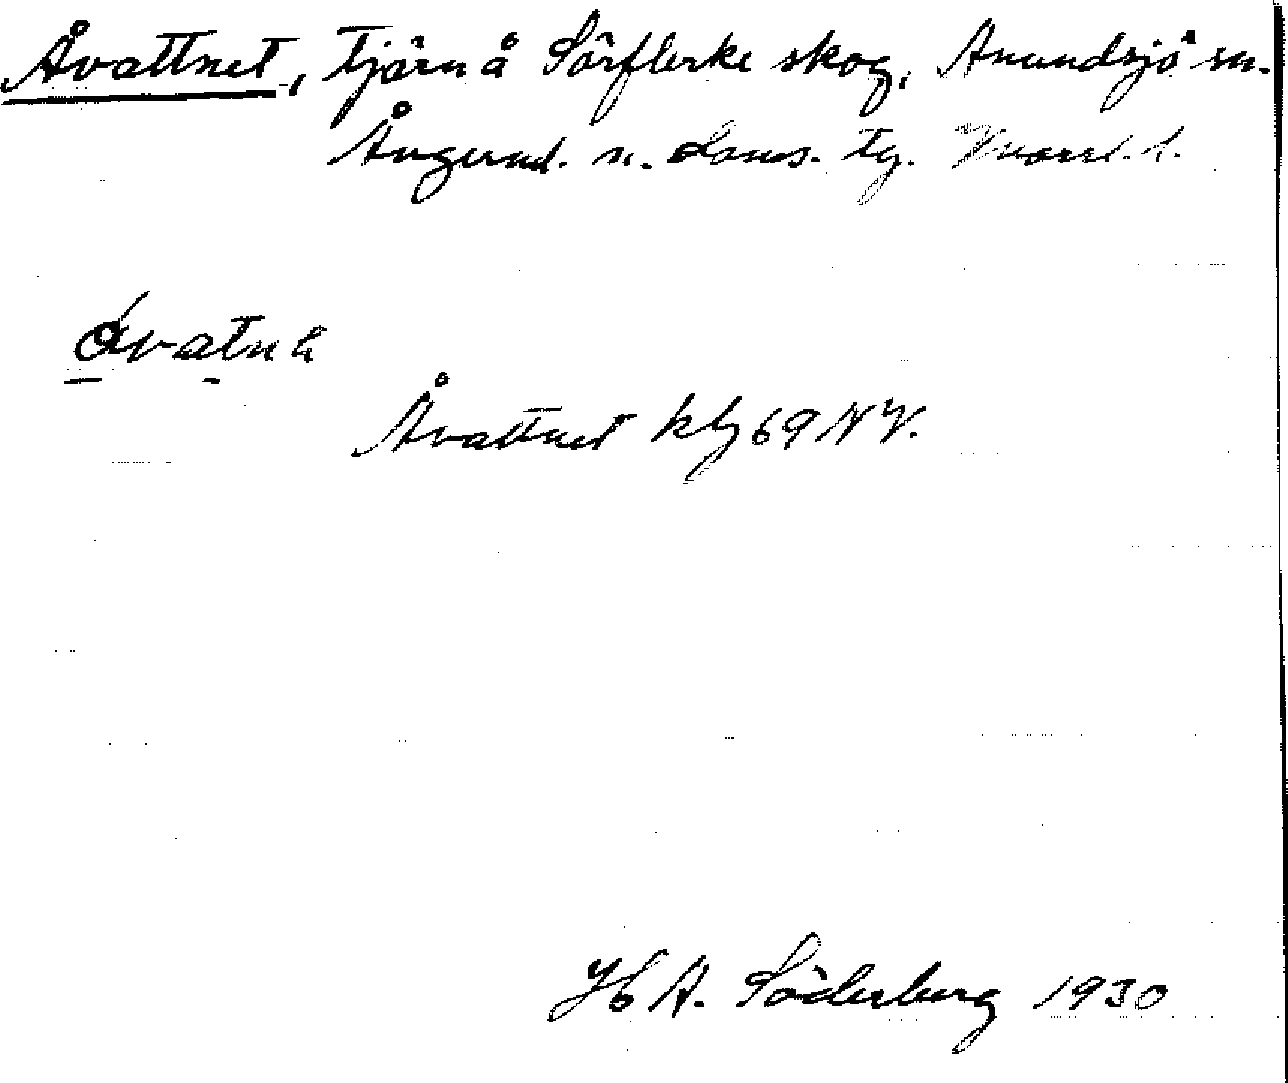 Åvattnet, Tjärn å Sörflerke skog, Anundsjö sn.
Ångerml. n. Doms. Tg. Vnorrl. l.
åvatnɑ
Åvattnet kbl 69 NV.
H A. Söderberg 1930